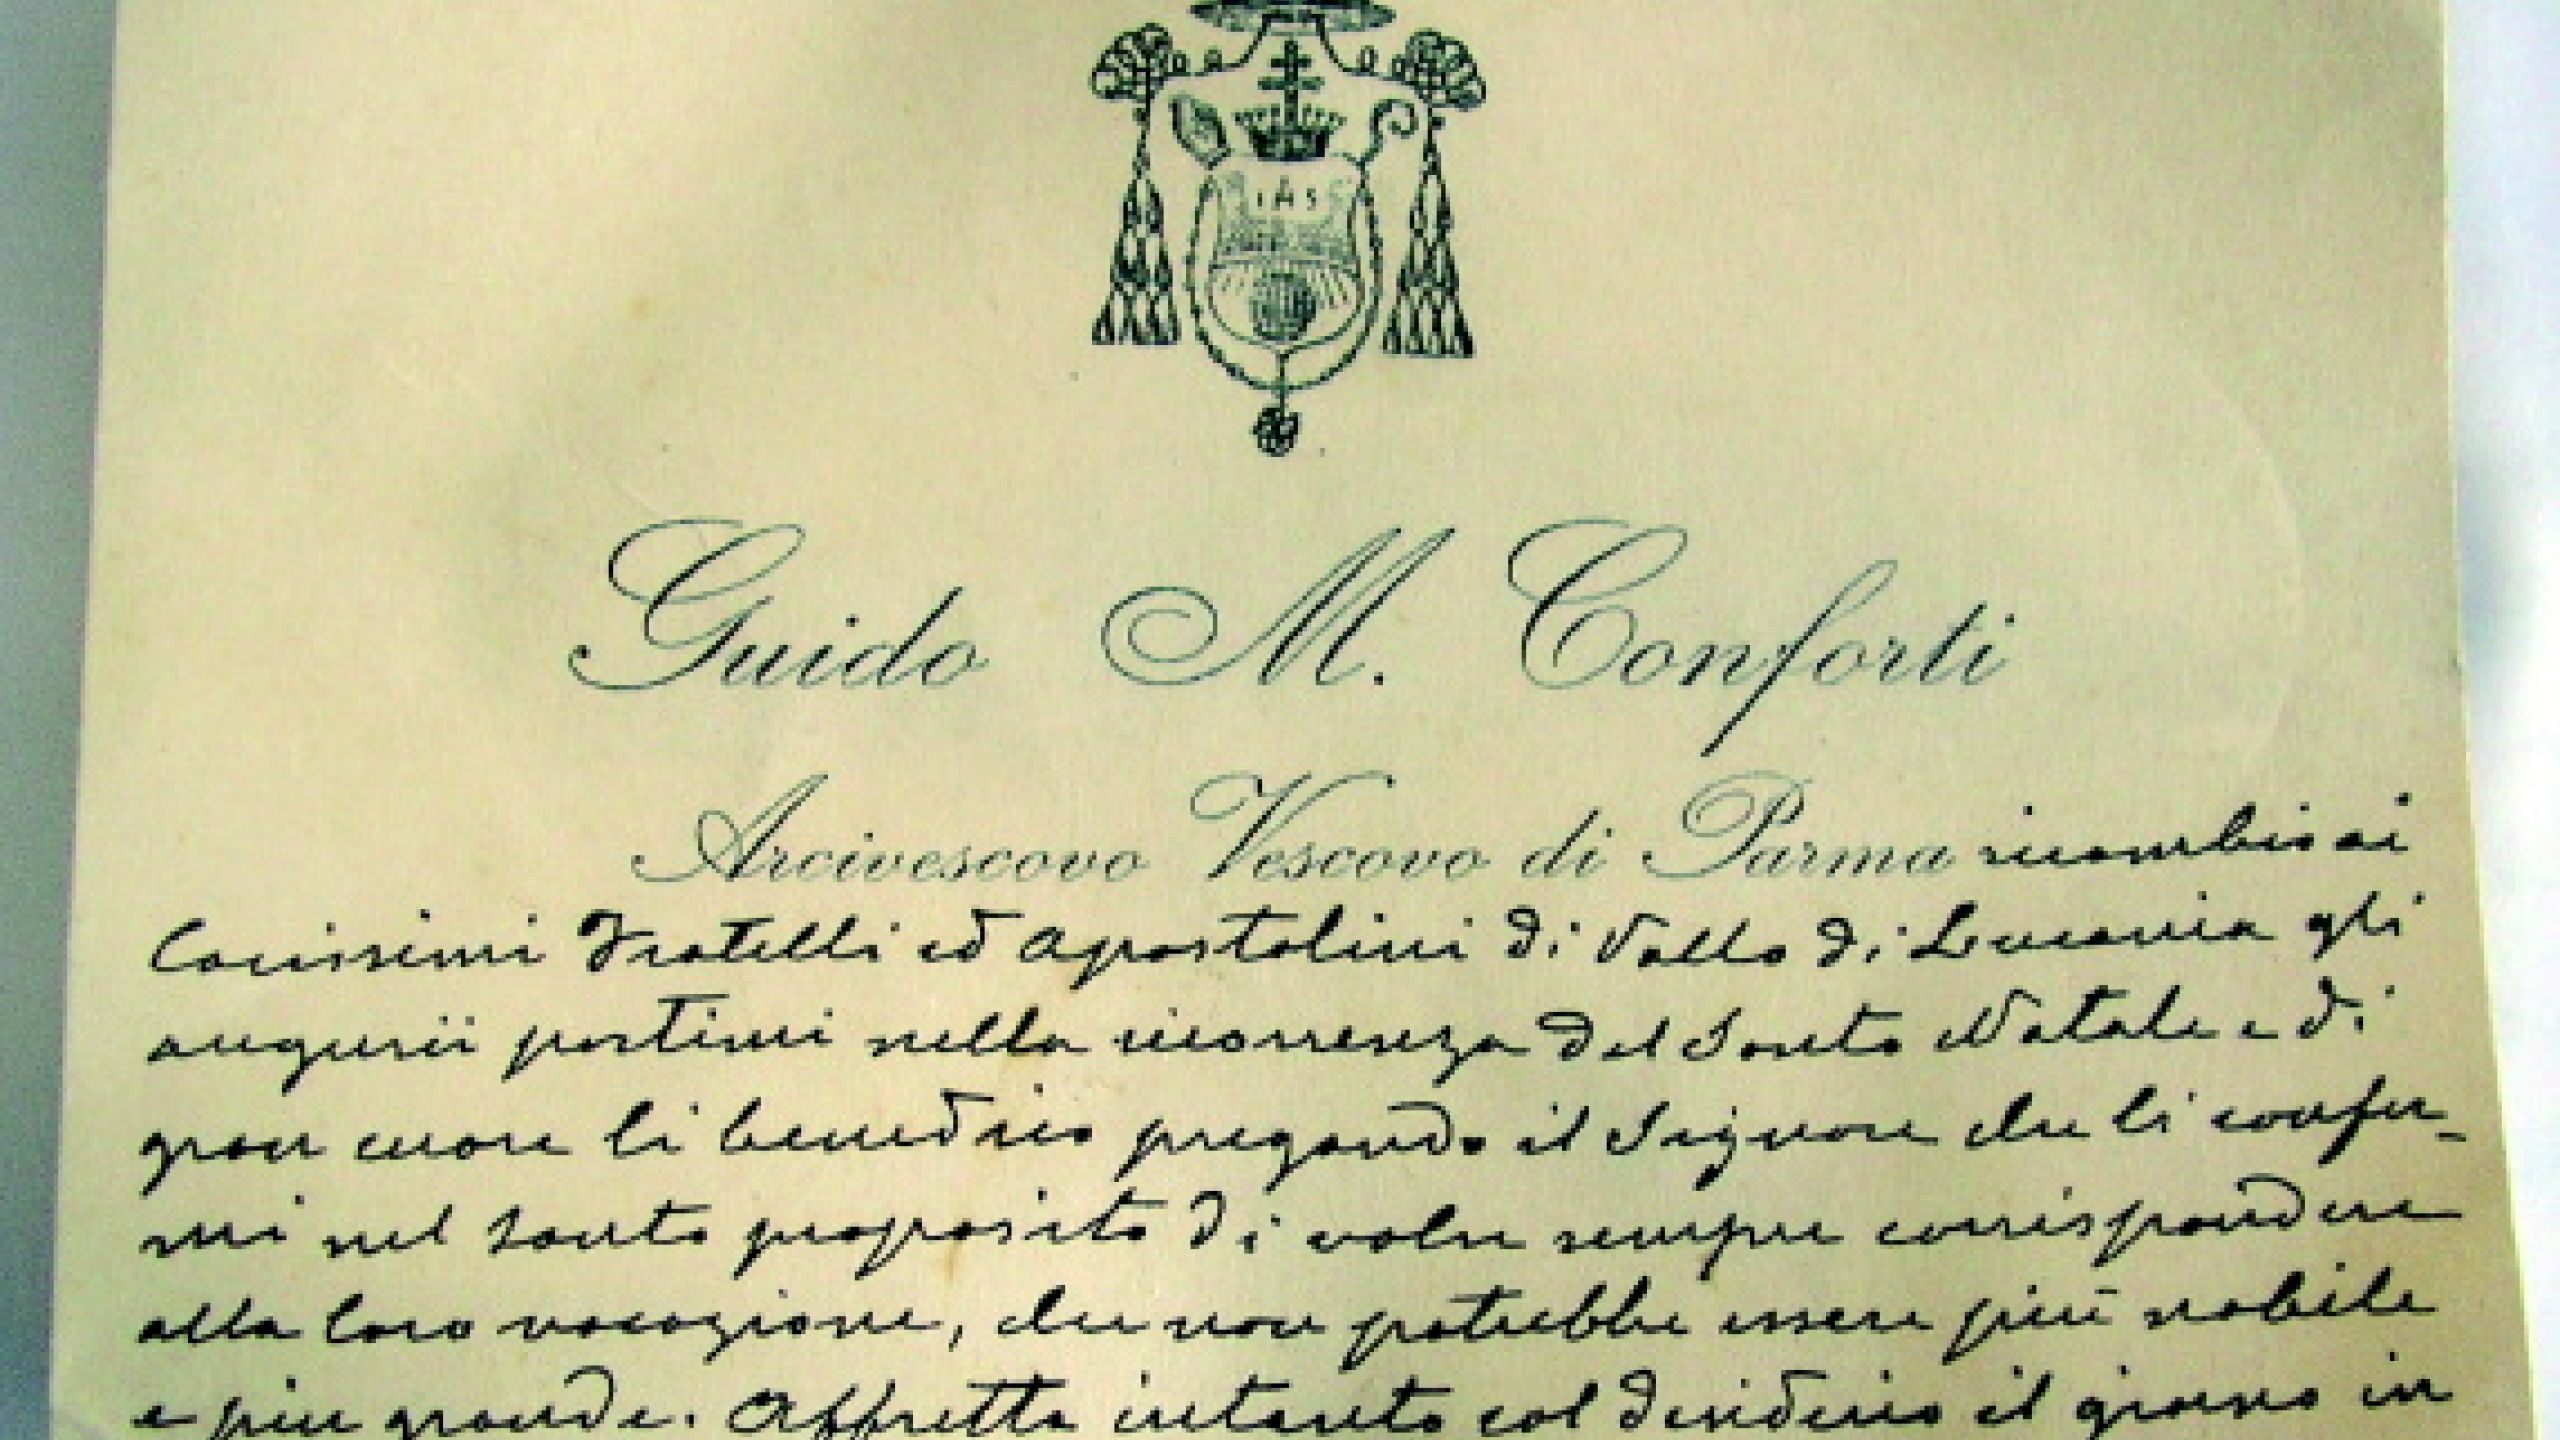 IHS
Guido M. Conforti
Arcivescovo Vescovo di Parma ricambia ai
Carissimi Fratelli ed Apostolini di Vallo di Lucania gli
augurii portimi nella ricorrenza del Santo Natale e di
gran cuore li benedico pregando il Signore che li confer-
mi nel santo proposito di voler sempre corrispondere
alla loro vocazione, che non potrebbe essere più nobile
e più grande. Affretta intanto col desiderio il giorno in